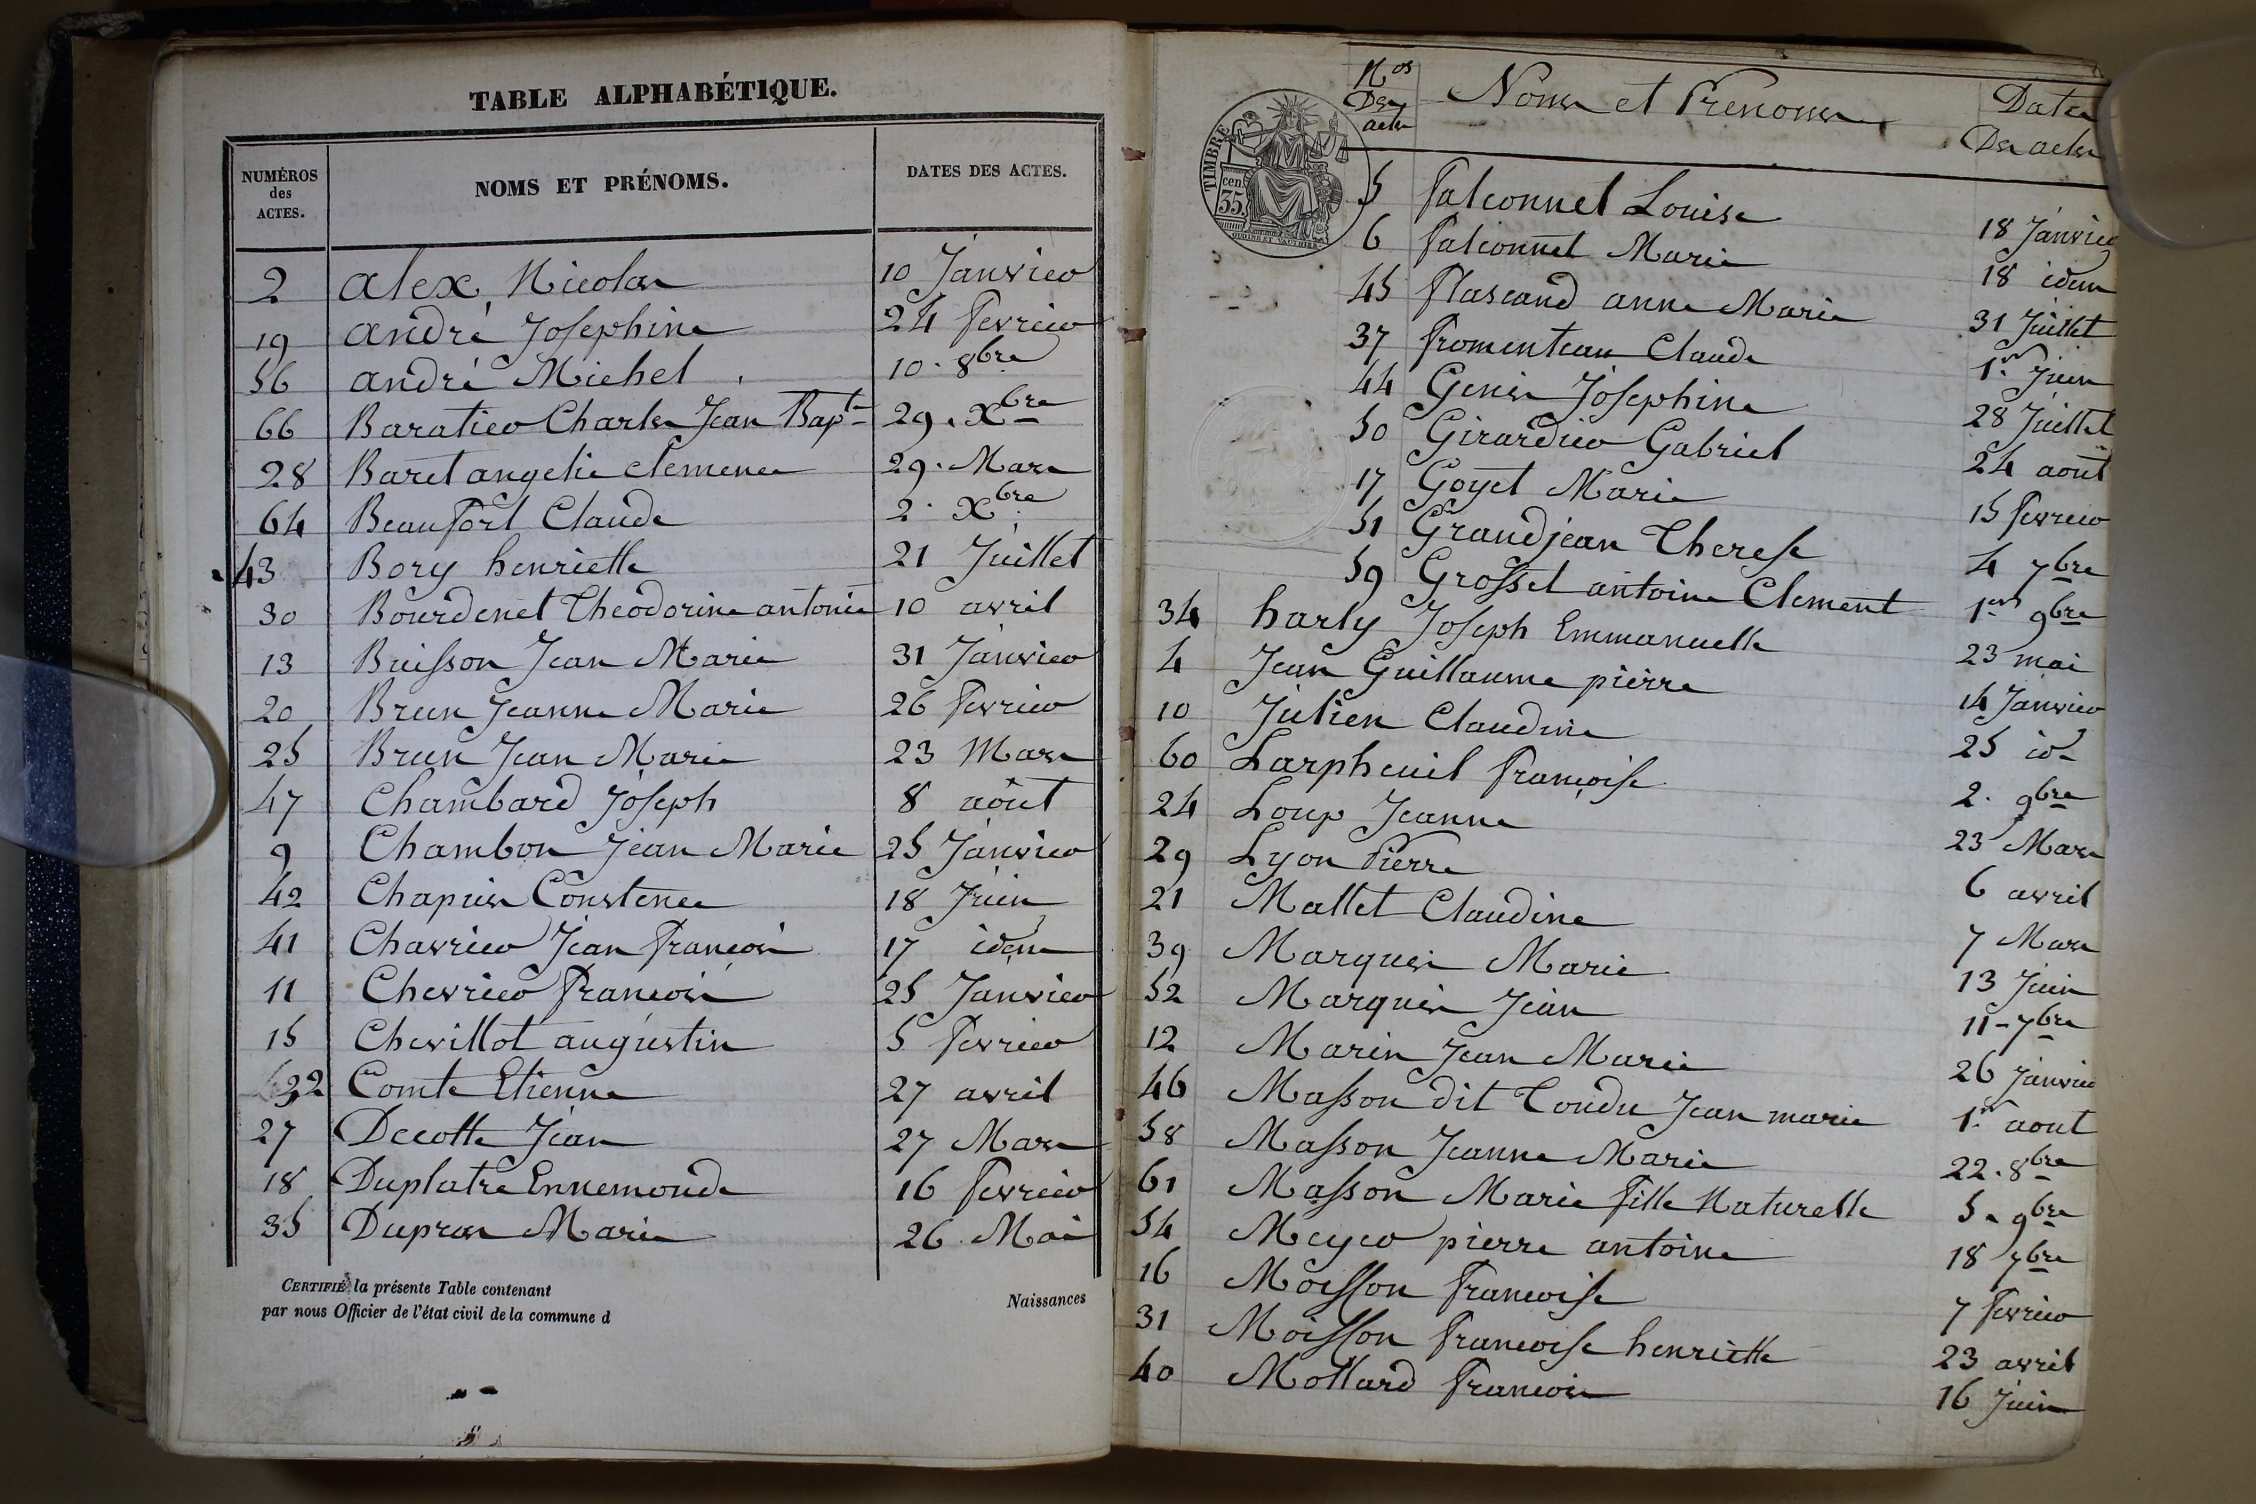 TABLE ALPHABÉTIQUE.
NUMÉROS des ACTES. NOMS ET PRÉNOMS. DATES DES ACTES.
2 alex Nicolas 10 Janvier
19 andré Josephine 24 fevrier
56 andré Michel 10. 8bre
66 Baratier Charles Jean Bapte 29. Xbre
28 Baret angelie clemence 29. Mars
64 Beaufort Claude 2. Xbre
43 Bory henriette 21 Juillet
30 Bourdenet Theodorine antonie 10 avril
13 Buisson Jean Marie 31 Janvier
20 Brun Jeanne Marie 26 fevrier
25 Brun Jean Marie 23 Mars
47 Chambard Joseph 8 août
9 Chambon Jean Marie 25 Janvier
42 Chapuis Constence 18 Juin
41 Chavrier Jean francois 17 idem
11 Chevrier francois 25 Janvier
15 Chevillot augustin 5 fevrier
32 Comte Etienne 27 avril
27 Decotte Jean 27 Mars
18 Duplatre Ennemonde 16 fevrier
35 Dupras Marie 26. Mai
CERTIFIÉ la présente Table contenant Naissances
par nous Officier de l'état civil de la commune d
Nos Des actes Noms et Prenoms Dates Des actes
TIMBRE
35 cen.
5 falconnet Louise 18 Janvier
6 falconnet Marie 18 idem
45 flascand anne Marie 31 Juillet
37 fromenteau Claude 1er Juin
44 Genis Josephine 28 Juillet
50 Girardier Gabriel 24 août
17 Goyet Marie 15 fevrier
51 Grandjean Therese 4 7bre
59 Grosset antoine Clement 1er 9bre
34 harly Joseph Emmanuelle 23 mai
4 Jean Guillaume pierre 14 Janvier
10 Julien Claudine 25 id
60 Larpheuil françoise 2. 9bre
24 Loup Jeanne 23 Mars
29 Lyon Pierre 6 avril
21 Mallet Claudine 7 Mars
39 Marquis Marie 13 Juin
52 Marquis Jean 11-7bre
12 Marin Jean Marie 26 Janvier
46 Masson dit Tondu Jean marie 1er aout
58 Masson Jeanne Marie 22. 8bre
61 Masson Marie fille Naturelle 5. 9bre
54 Meyer pierre antoine 18 7bre
16 Moisson francoise 7 fevrier
31 Moisson francoise henriette 23 avril
40 Mollard francois 16 Juin